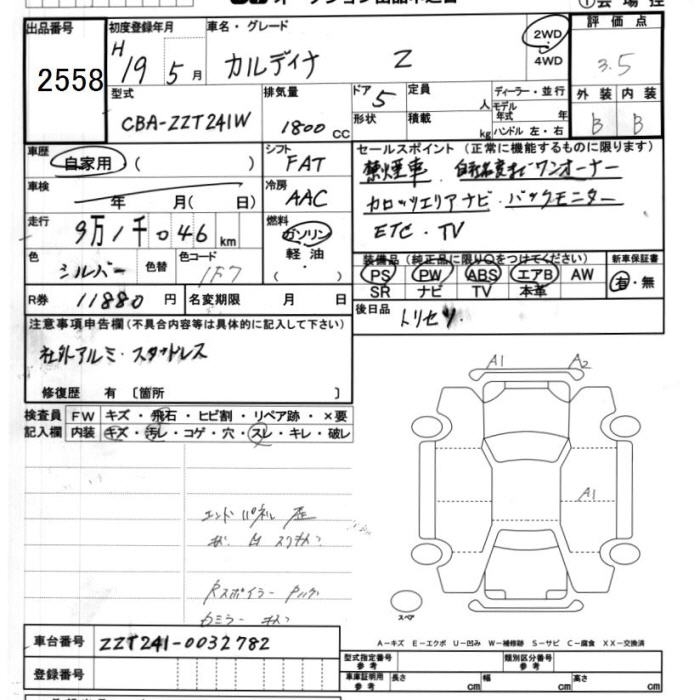 出品番号 2558
初度登録年月 H 19 5月
車名・グレード カルディナ Z
2WD 4WD
①会場控
評価点 3.5
型式 CBA-ZZT241W
排気量 1800 CC
ドア 5
形状
定員 人
積載 kg
ディーラー・並行
モデル年式 年
ハンドル 左・右
外装 B
内装 B
車歴 自家用 ( )
シフト FAT
車検 年 月( 日)
冷房 AAC
走行 9万1千046km
燃料 ガソリン 軽油・ ( )
色 シルバー 色替
色コード 1F7
R券 11880円
名変期限 月 日
セールスポイント (正常に機能するものに限ります)
禁煙車 ワンオーナー
カロッツェリアナビ・バックモニター
ETC・TV
装備品 (純正品に限り○をつけてください)
新車保証書
PS PW ABS エアB AW
有・無
SR ナビ TV 本革
後日品 トリセツ
注意事項申告欄(不具合内容等は具体的に記入して下さい)
社外アルミ・スタッドレス
修復歴 有〔箇所 〕
検査員記入欄
FW キズ・飛石・ヒビ割・リペア跡・×要
内装 キズ・汚レ・コゲ・穴・スレ・キレ・破レ
エンドパネル
Rスポイラー
A1 A2
A1
スペア
A-キズ E-エクボ U-凹み W-補修跡 S-サビ C-腐食 XX-交換済
車台番号 ZZT241-0032782
登録番号
型式指定番号 参考
類別区分番号 参考
車庫証明用 参考 長さ cm 幅 cm 高さ cm